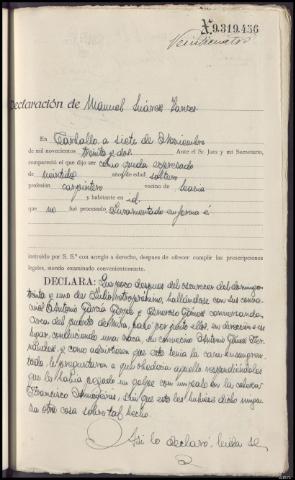 N.9.319.456
Veinticuatro
Declaración de Manuel Suárez
En Carballo a siete de Noviembre
de mil novecientos treinta y dos Ante el Sr. Juez y mi Secretario,
compareció el que dijo ser como queda expresado
de veintidós años, edad soltero
profesión carpintero vecino de
y habitante en id.
que no fué procesado Juramentado en forma é
instruído por S. S.ª con arreglo a derecho, después de ofrecer cumplir las prescripciones
legales, siendo examinado convenientemente.
DECLARA: Que poco despues del oscurecer del domingo
treinta y uno de Julio último, hallándose con sus conve-
cinos Antonio García y Generoso Gómez conversando,
cerca del puente, pasó por junto ellos, en dirección a su
lugar, conduciendo una vaca, su convecino Antonio Gómez Fer-
nández, y como advirtieran que este tenía la cara ensangren-
tada, le preguntaron a qué obedecía aquello respondiéndoles
que le había pegado un golpe con un palo en la cabeza
Francisco, sin que este les hubiera dicho ningu-
na otra cosa sobre tal hecho.
Así lo declaró, leída se